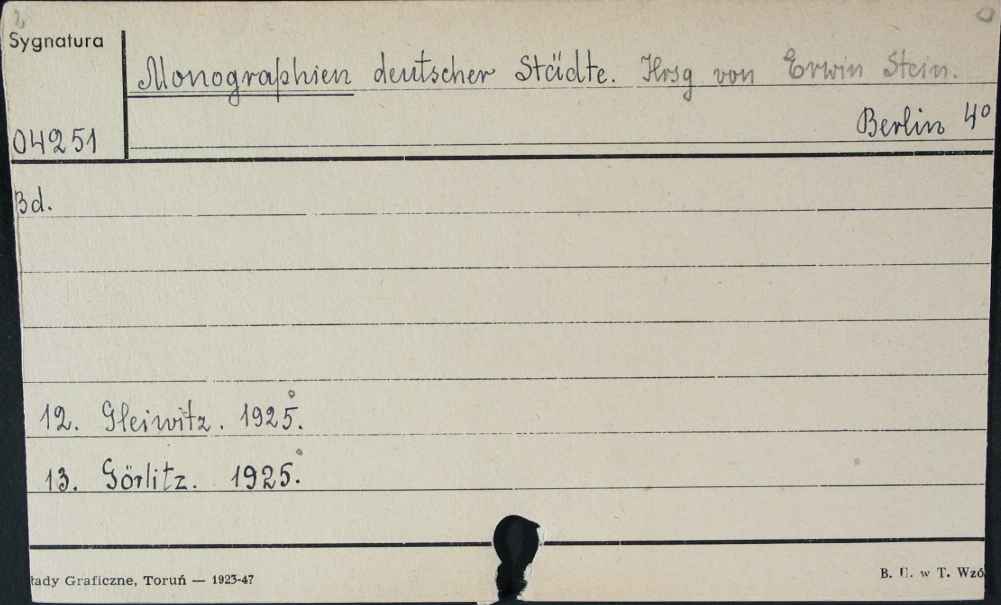 Sygnatura
Monographien deutscher Städte. Hrsg von Erwin Stein.
04251
Berlin 4°
Bd.
12. Gleiwitz. 1925.
13. Görlitz. 1925.
łady Graficzne, Toruń — 1923-47
B. U. w T. Wzó